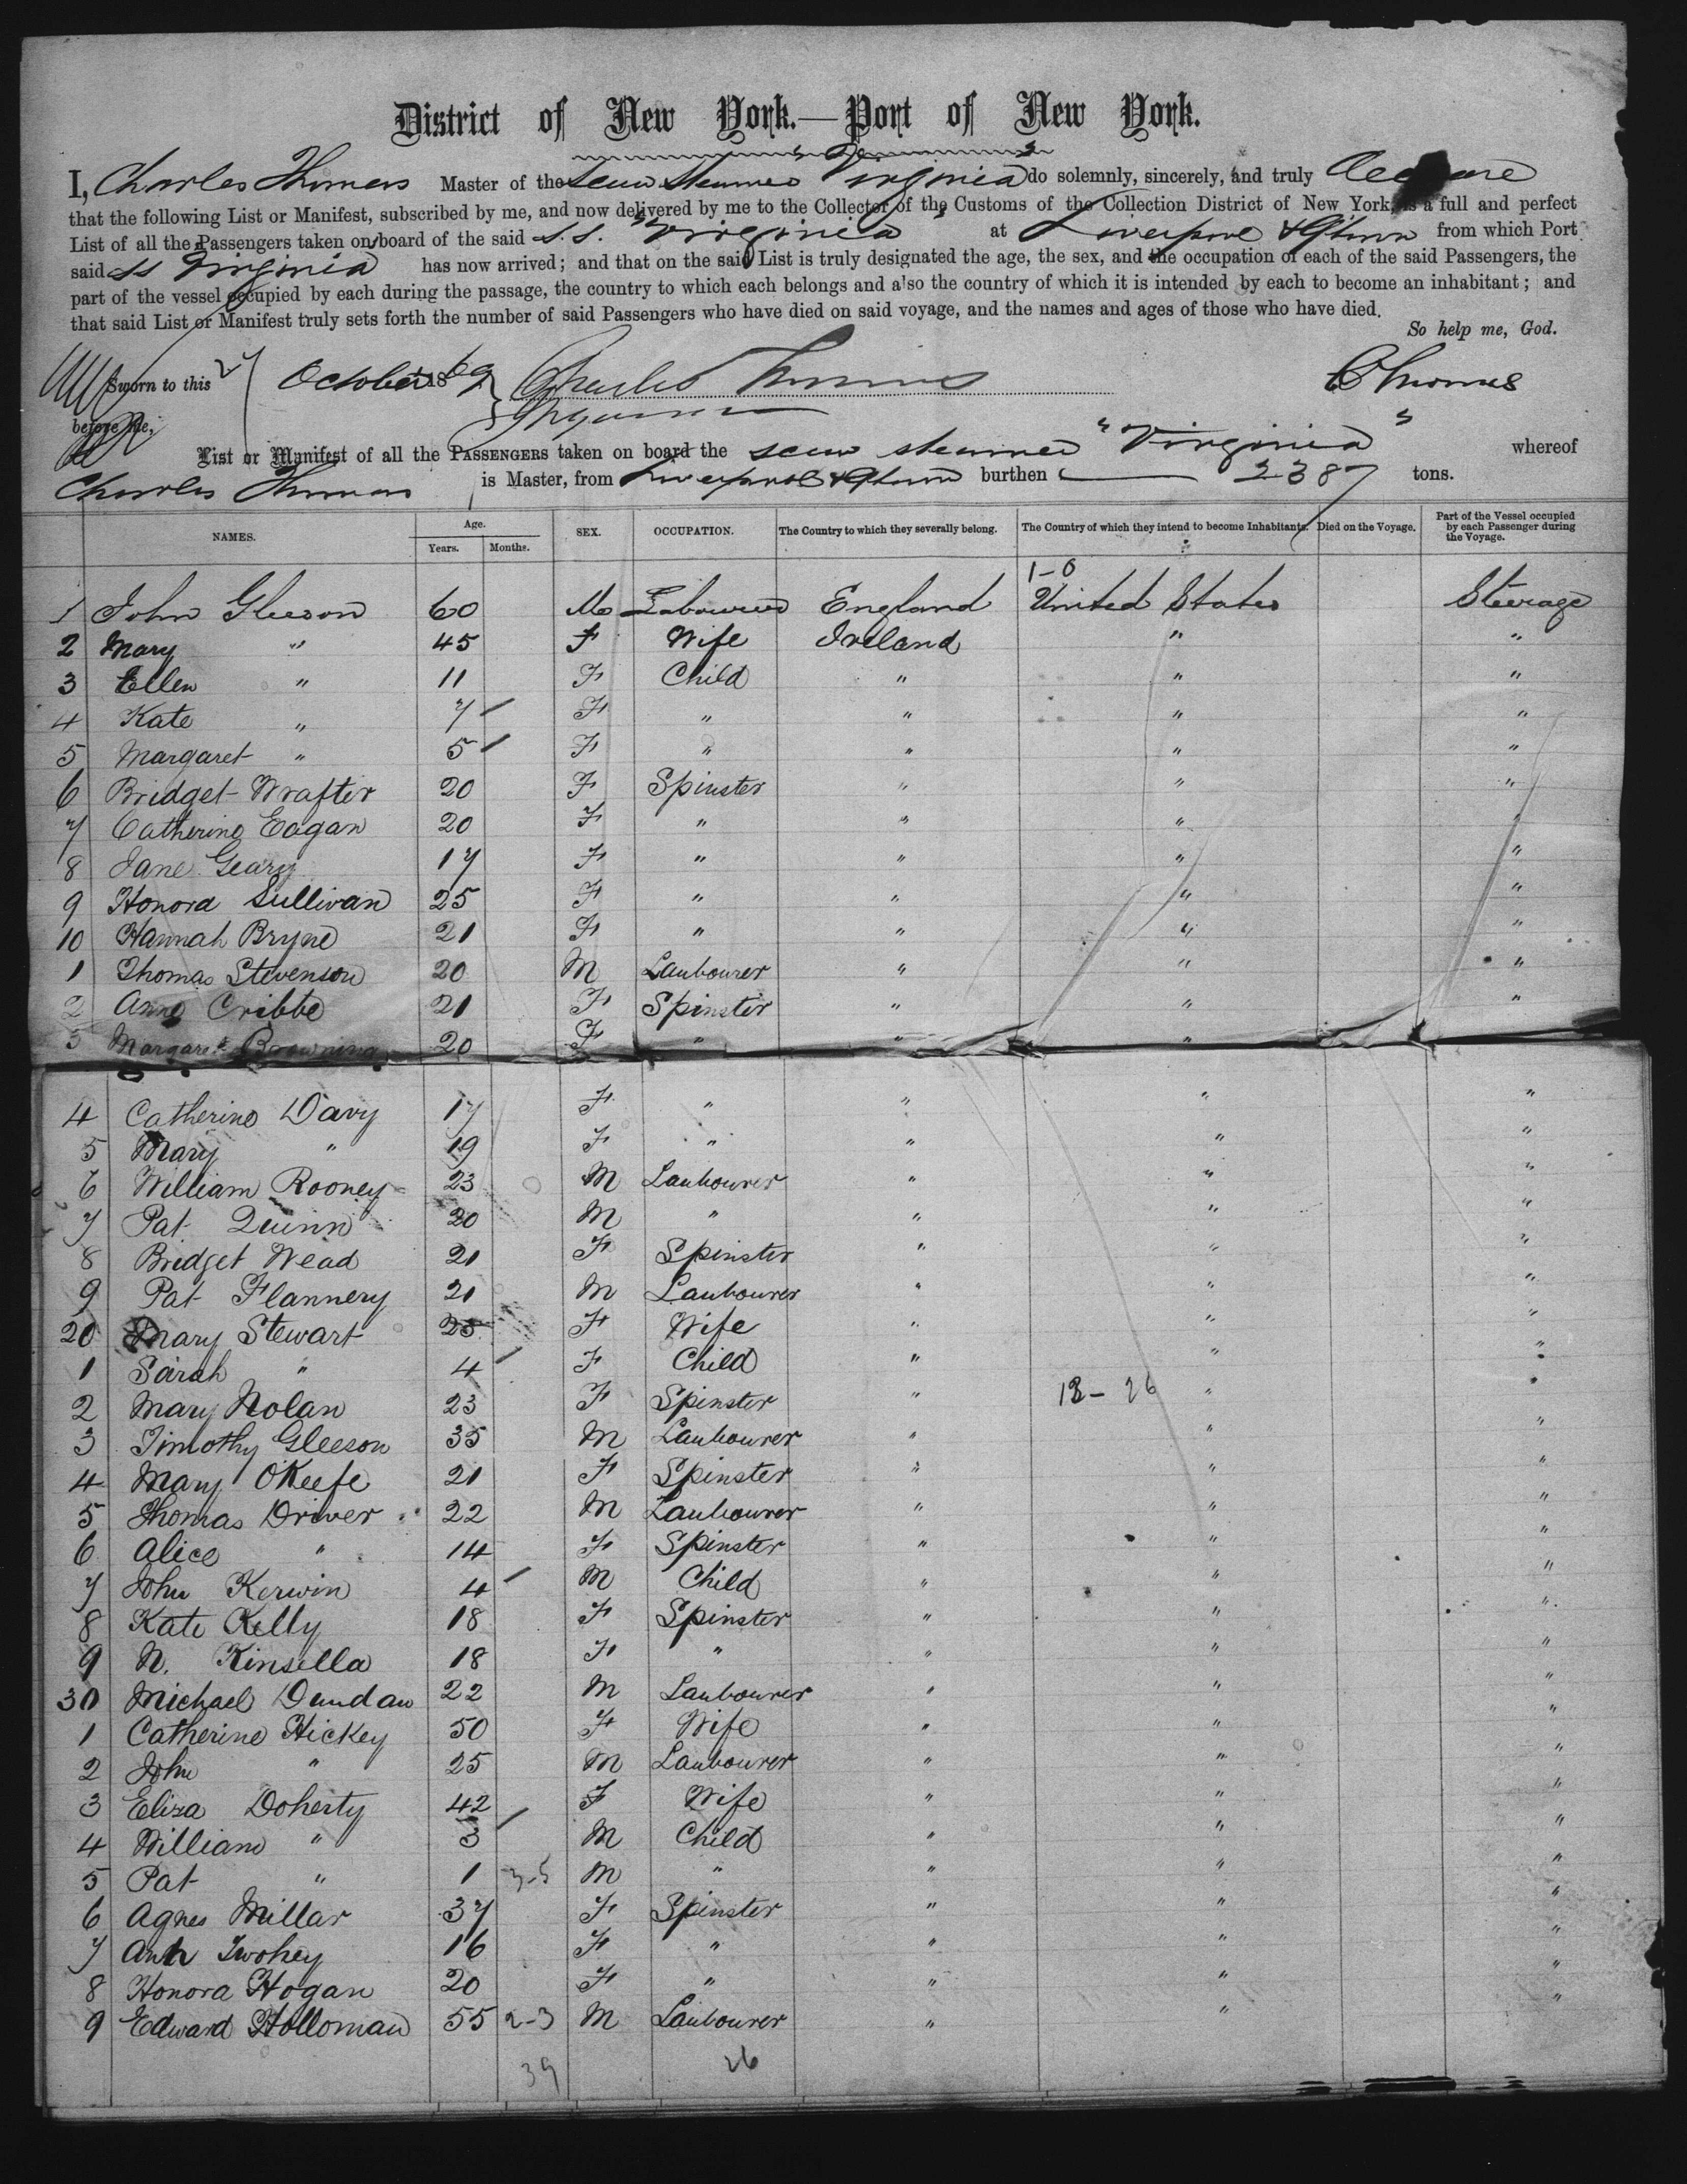 District of New York.—Port of New York.
I, Charles Thomas Master of the Screw Steamer "Virginia" do solemnly, sincerely, and truly declare
that the following List or Manifest, subscribed by me, and now delivered by me to the Collector of the Customs of the Collection District of New York, is a full and perfect
List of all the Passengers taken on board of the said S.S. "Virginia" at Liverpool & Qtown from which Port
said SS Virginia has now arrived; and that on the said List is truly designated the age, the sex, and the occupation of each of the said Passengers, the
part of the vessel occupied by each during the passage, the country to which each belongs and also the country of which it is intended by each to become an inhabitant; and
that said List or Manifest truly sets forth the number of said Passengers who have died on said voyage, and the names and ages of those who have died.
So help me, God.
Sworn to this October 1869 Charles Thomas CThomas
before me,
List or Manifest of all the PASSENGERS taken on board the screw steamer "Virginia" whereof
Charles Thomas is Master, from Liverpool & Qtown burthen 2387 tons.
NAMES. Age. Years. Months. SEX. OCCUPATION. The Country to which they severally belong. The Country of which they intend to become Inhabitants. Died on the Voyage. Part of the Vessel occupied by each Passenger during the Voyage.
1-0
1 John Gleeson 60 M Labourer England United States Steerage
2 Mary " 45 F Wife Ireland " "
3 Ellen " 11 F Child " " "
4 Kate " 7 F " " " "
5 Margaret " 5 F " " " "
6 Bridget Wrafter 20 F Spinster " " "
7 Catherine Eagan 20 F " " " "
8 Jane Geary 17 F " " " "
9 Honora Sullivan 25 F " " " "
10 Hannah Bryne 21 F " " " "
1 Thomas Stevenson 20 M Laubourer " " "
2 Anne Cribbe 21 F Spinster " " "
3 Margaret Browning 20 F " " "
4 Catherine Davy 17 F " " " "
5 Mary " 19 F " " " "
6 William Rooney 23 M Laubourer " " "
7 Pat Quinn 20 M " " " "
8 Bridget Wead 21 F Spinster " " "
9 Pat Flannery 21 M Laubourer " " "
20 Mary Stewart 25 F Wife " " "
1 Sarah " 4 F Child " " "
2 Mary Nolan 23 F Spinster " 18-26 " "
3 Timothy Gleeson 35 M Laubourer " " "
4 Mary OKeefe 21 F Spinster " " "
5 Thomas Driver 22 M Laubourer " " "
6 Alice " 14 F Spinster " " "
7 John Kerwin 4 M Child " " "
8 Kate Kelly 18 F Spinster " " "
9 N. Kinsella 18 F " " " "
30 Michael Dundan 22 M Laubourer " " "
1 Catherine Hickey 50 F Wife " " "
2 John " 25 M Laubourer " " "
3 Eliza Doherty 42 F Wife " " "
4 William " 3 M Child " " "
5 Pat " 1 3-5 M " " " "
6 Agnes Millar 37 F Spinster " " "
7 Ann Twohey 16 F " " " "
8 Honora Hogan 20 F " " " "
9 Edward Holloman 55 2-3 M Laubourer " " "
39 26